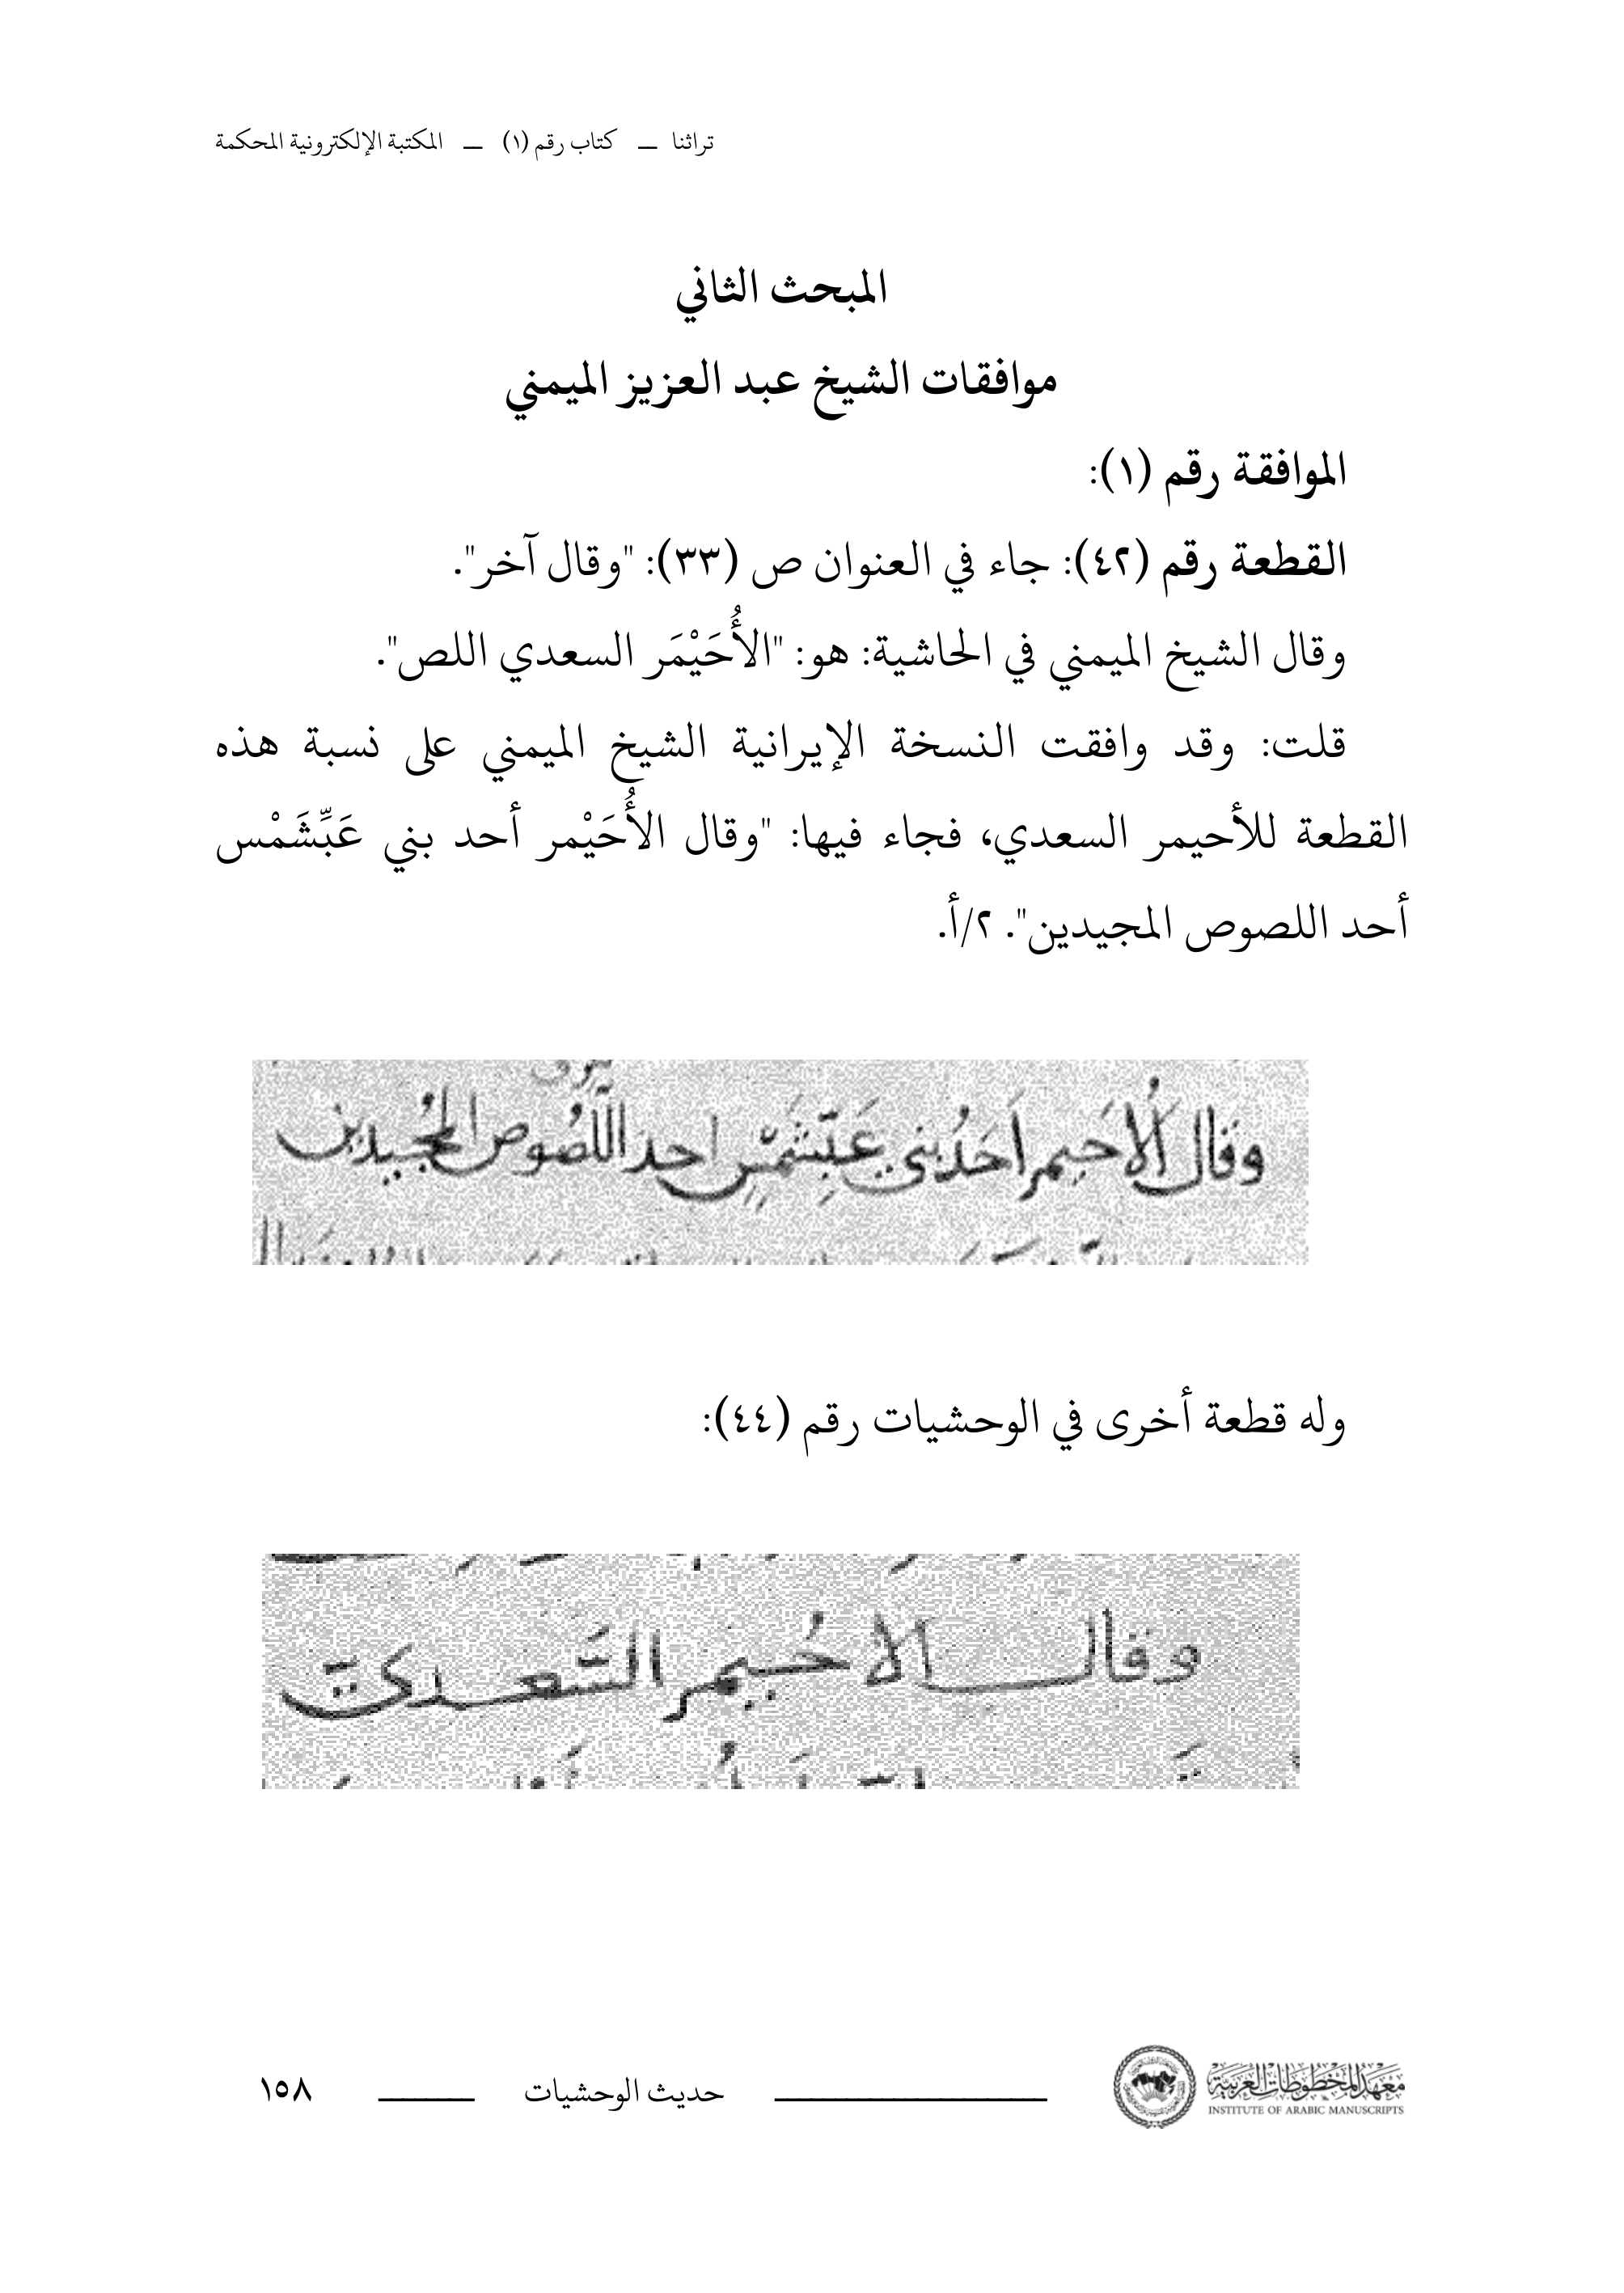 تراثنا — كتاب رقم (١) — المكتبة الإلكترونية المحكمة
المبحث الثاني
موافقات الشيخ عبد العزيز الميمني
الموافقة رقم (١):
القطعة رقم (٤٢): جاء في العنوان ص (٣٣): "وقال آخر".
وقال الشيخ الميمني في الحاشية: هو: "الأُحَيْمَر السعدي اللص".
قلت: وقد وافقت النسخة الإيرانية الشيخ الميمني على نسبة هذه
القطعة للأحيمر السعدي، فجاء فيها: "وقال الأُحَيْمر أحد بني عَبِّشَمْس
أحد اللصوص المجيدين". ٢/أ.
وقال الُاحَيمر اَحَدُ بنى عَبِّشَمْسٍ احد اللَّصُوص المُجيدين
وله قطعة أخرى في الوحشيات رقم (٤٤):
وقال الاحُيمر السَّعدىّ
معهد المخطوطات العربية
INSTITUTE OF ARABIC MANUSCRIPTS
حديث الوحشيات
١٥٨